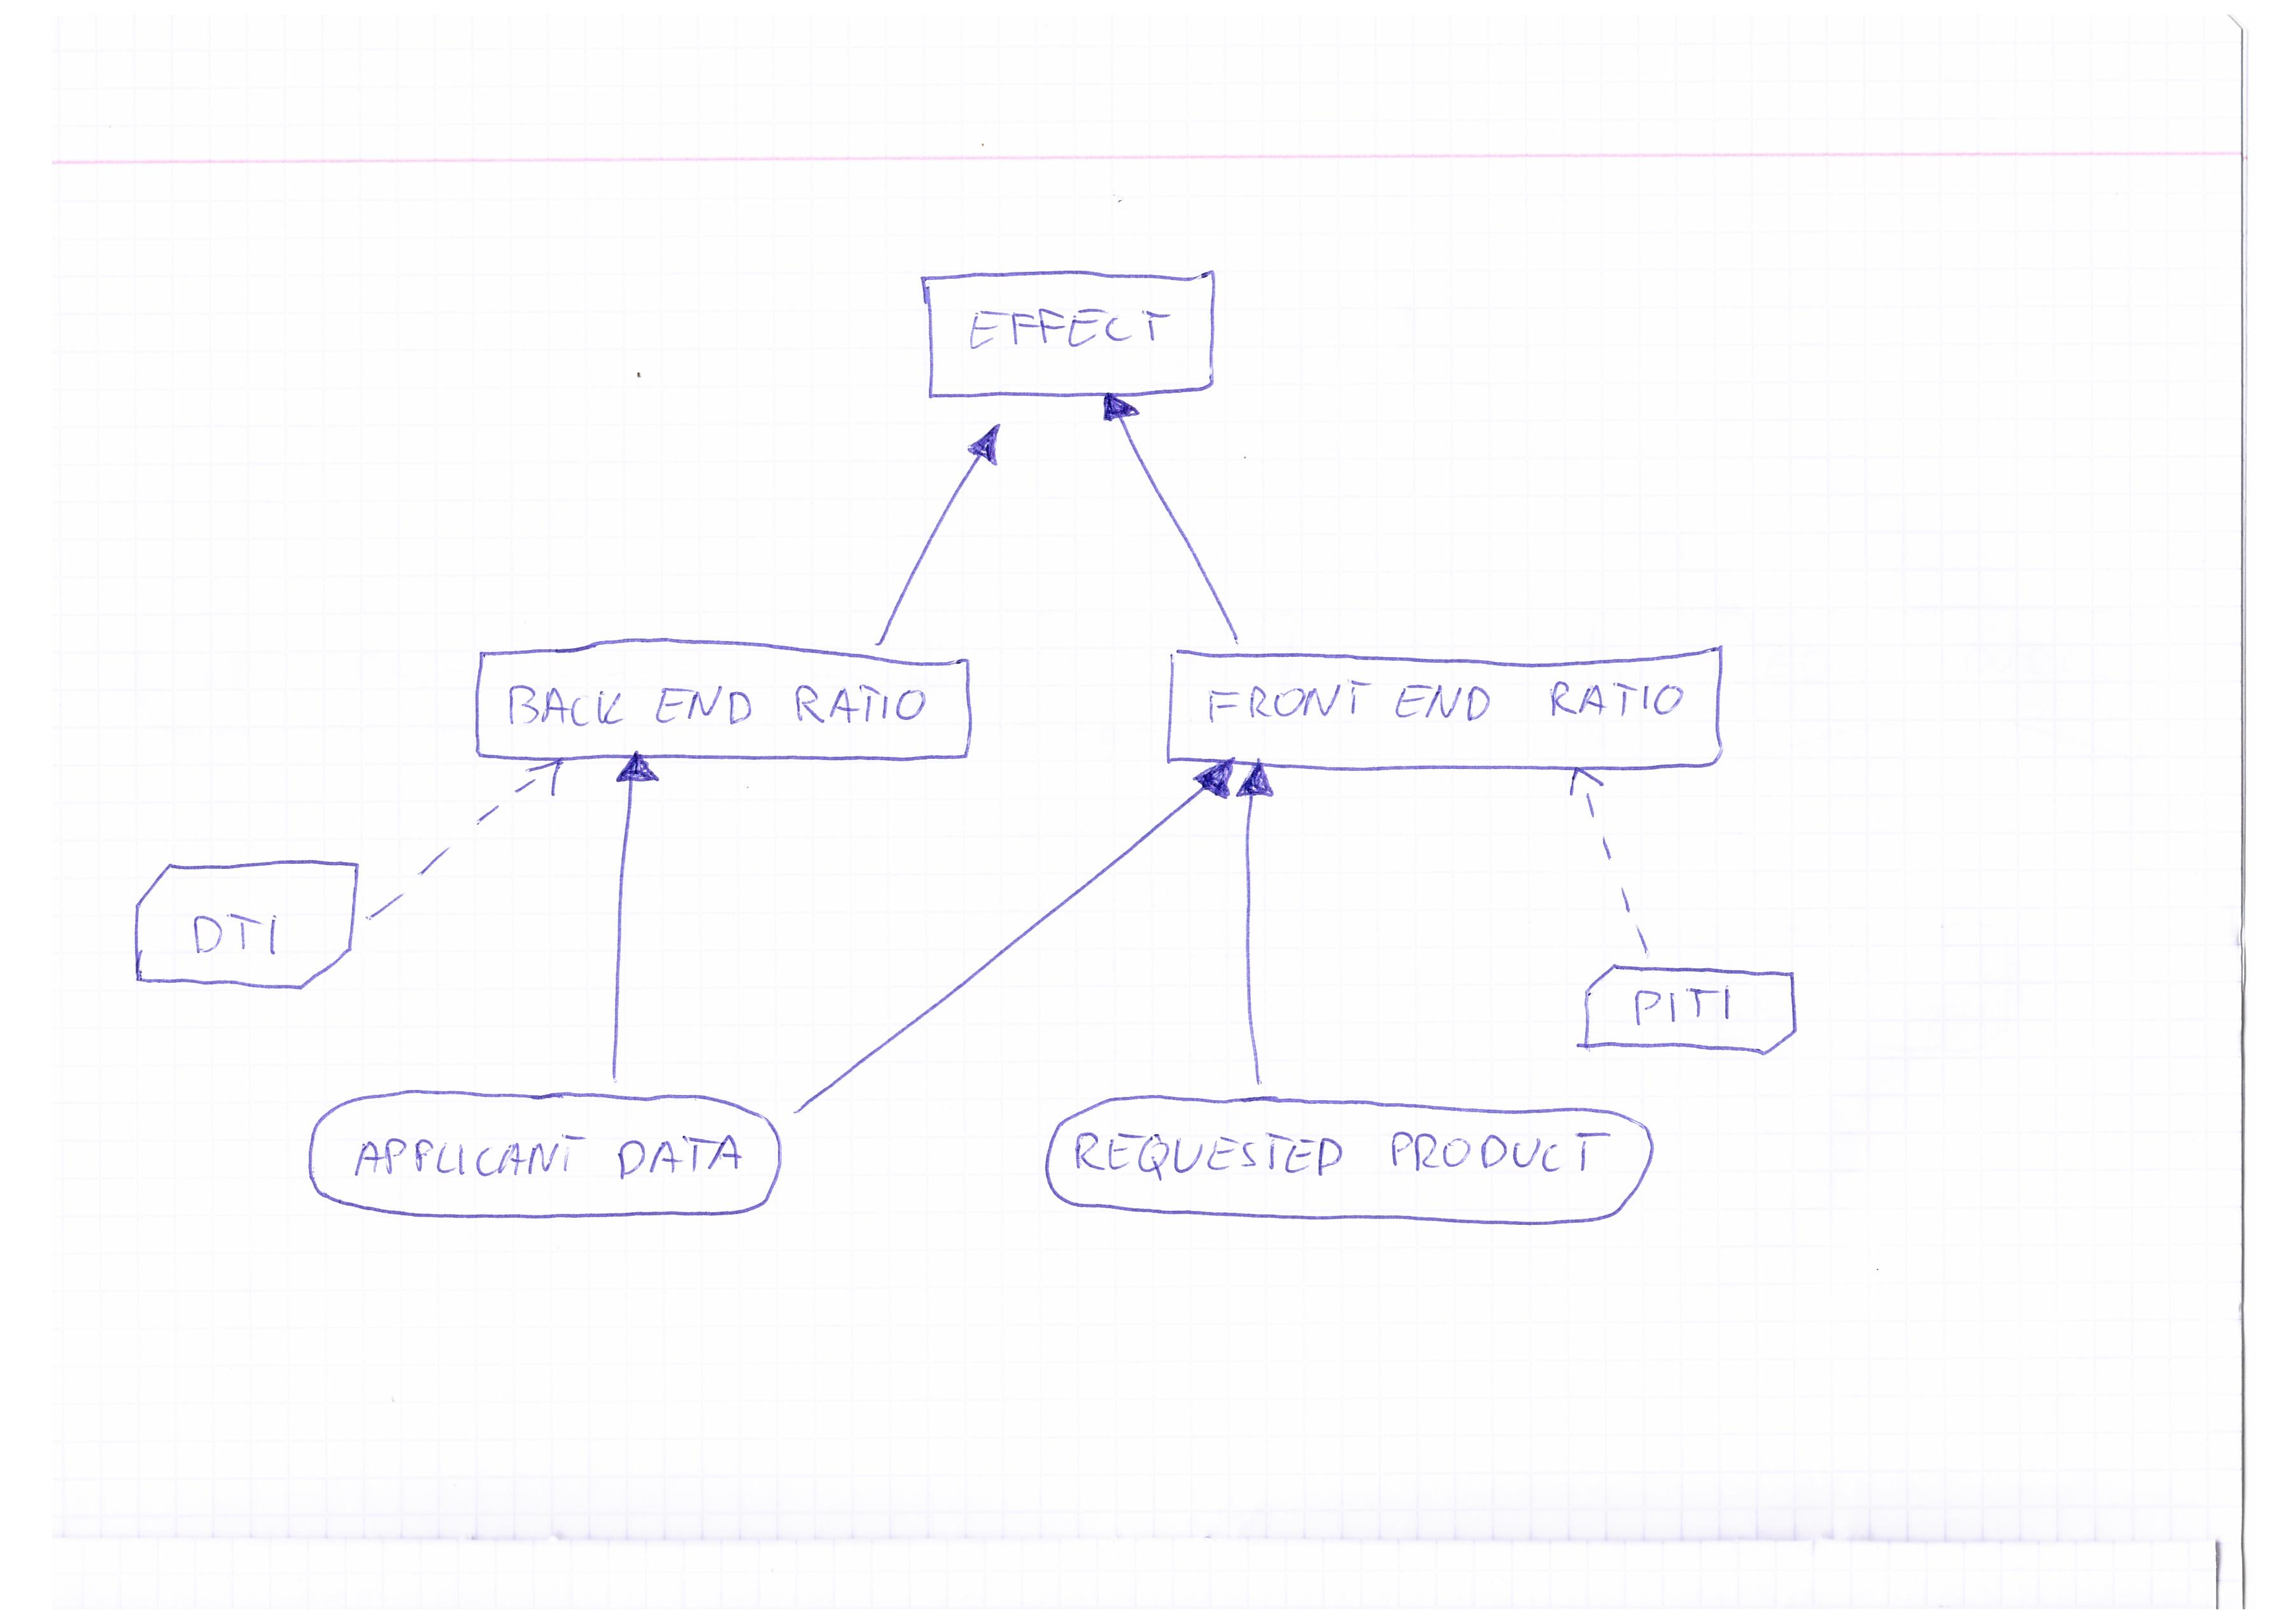 EFFECT
BACK END RATIO
FRONT END RATIO
DTI
PITI
APPLICANT DATA
REQUESTED PRODUCT